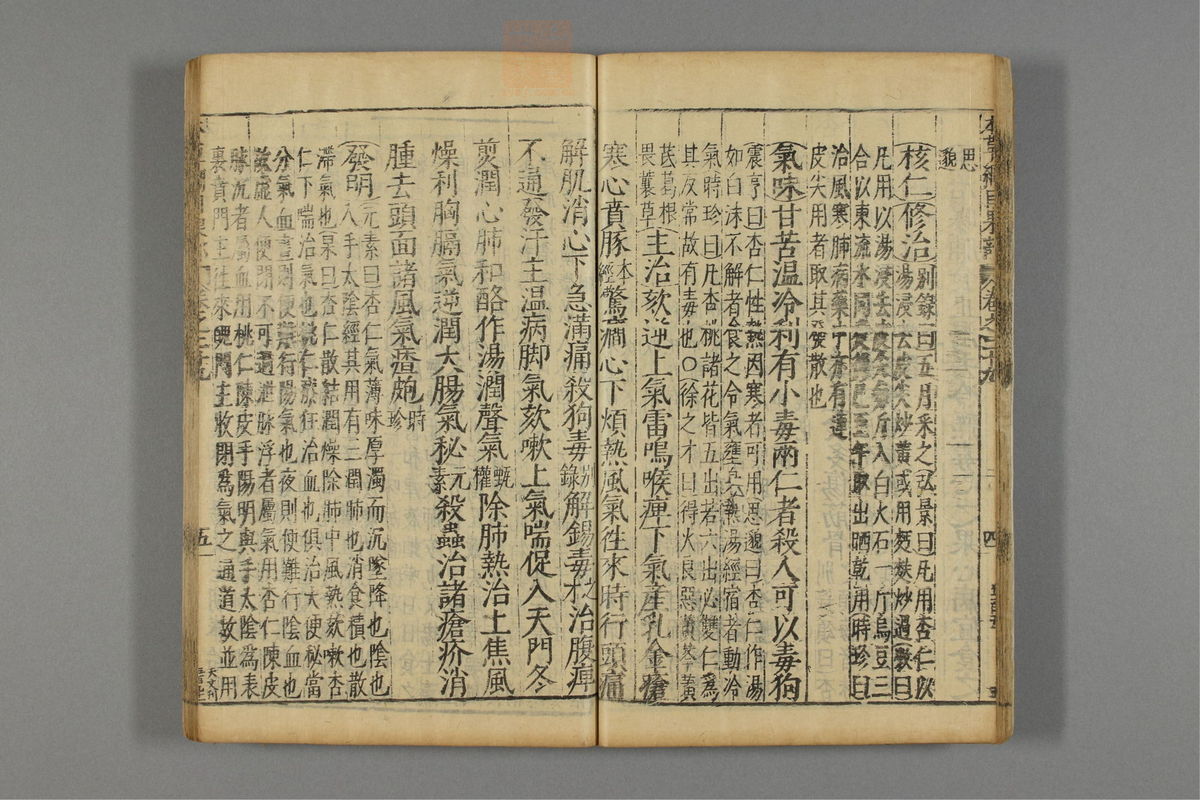 思
邈
核仁修治別錄曰五月采之弘景曰凡用杏仁以
湯浸去皮尖炒黃或用麪麩炒過斅曰
凡用以湯浸去皮尖每斤入白火石一斤烏豆三
合以東流水同煮從巳至午取出晒乾用時珍曰
治風寒肺病藥中亦有連
皮尖用者取其發散也
氣味甘苦温冷利有小毒兩仁者殺人可以毒狗
震亨曰杏仁性熱因寒者可用思邈曰杏仁作湯
如白沫不解者食之令氣壅身熱湯經宿者動冷
氣時珍曰凡杏桃諸花皆五出若六出必雙仁爲
其反常故有毒也○徐之才曰得火良惡黃芩黃
芪葛根
畏蘘草
主治欬逆上氣雷鳴喉痺下氣産乳金瘡
寒心賁豚本經驚癇心下煩熱風氣徃來時行頭痛
解肌消心下急滿痛殺狗毒別錄解錫毒之才治腹痺
不通發汗主温病脚氣欬嗽上氣喘促入天門冬
煎潤心肺和酪作湯潤聲氣甄權除肺熱治上焦風
燥利胸膈氣逆潤大腸氣秘元素殺蟲治諸瘡疥消
腫去頭面諸風氣㾴皰時珍
發明元素曰杏仁氣薄味厚濁而沉墜降也陰也
入手太陰經其用有三潤肺也消食積也散
滯氣也杲曰杏仁散結潤燥除肺中風熱欬嗽杏
仁下喘治氣也桃仁療狂治血也俱治大便秘當
分氣血晝則便難行陽氣也夜則便難行陰血也
故虛人便閉不可過泄脉浮者屬氣用杏仁陳皮
脉沉者屬血用桃仁陳皮手陽明與手太陰爲表
裏賁門主往來魄門主收閉爲氣之通道故並用